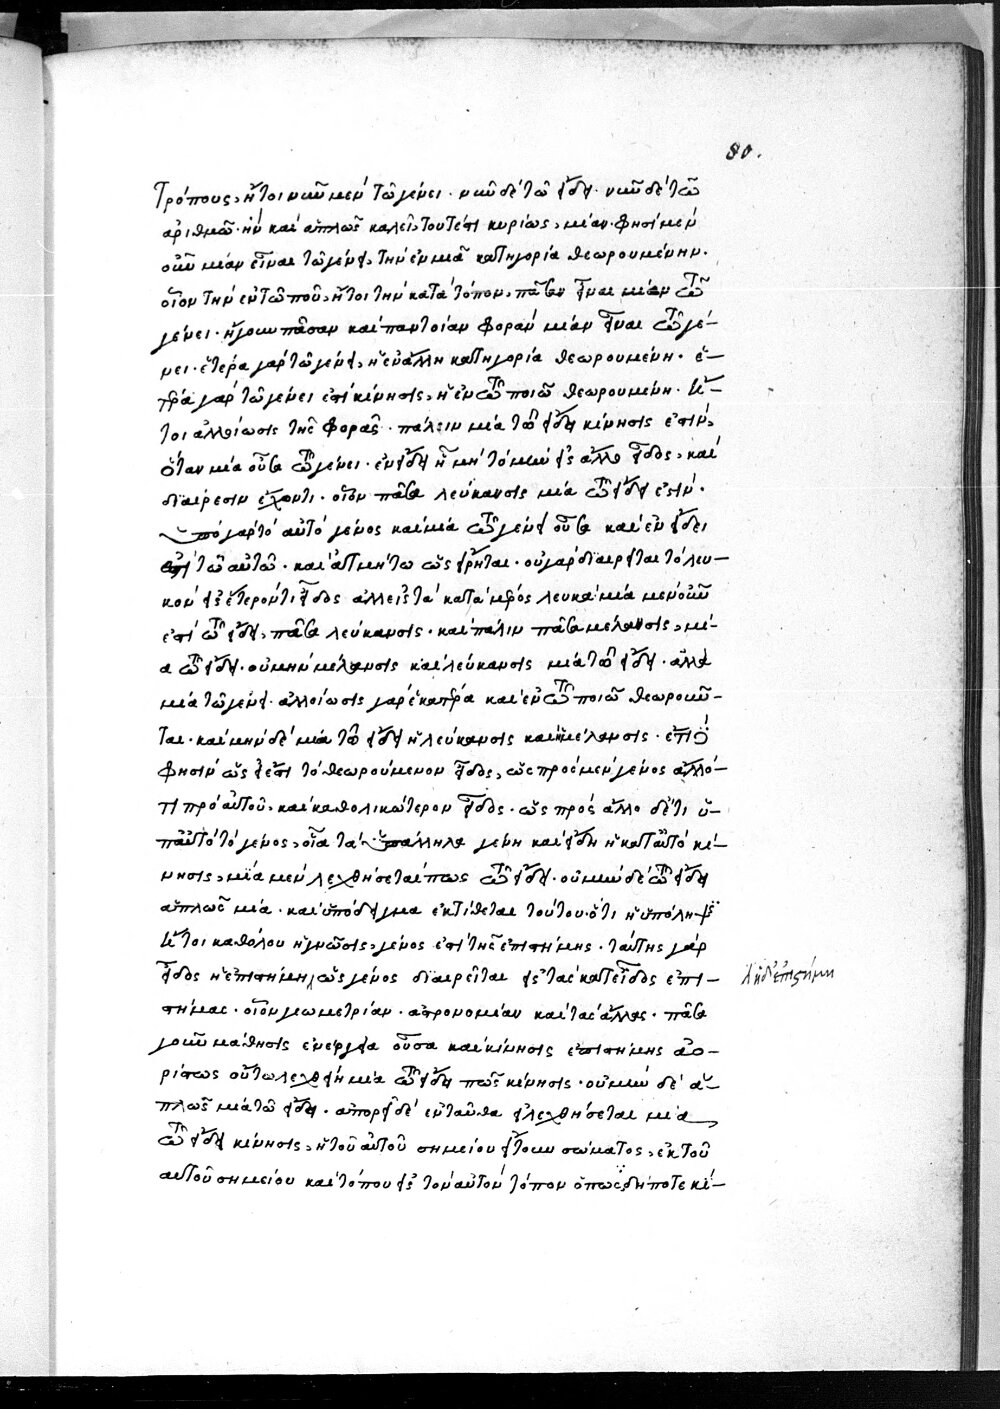 80.
τρόπους, ἤτοι νῦν μὲν τῷ γένει· νῦν δὲ τῷ εἴδει· νῦν δὲ τῷ
ἀριθμῷ· ἣν καὶ ἁπλῶς καλεῖ, τουτέστι κυρίως, μίαν· φησὶ μὲν
οὖν μίαν εἶναι τῷ γένει, τὴν ἐν μιᾷ κατηγορίᾳ θεωρουμένην·
οἷον τὴν ἐν τῷ ποῦ, ἤτοι τὴν κατὰ τόπον, πᾶσαν εἶναι μίαν τῷ
γένει· ἤγουν πᾶσαν καὶ παντοίαν φορὰν μίαν εἶναι τῷ γέ-
νει· ἑτέρα γὰρ τῷ γένει, ἡ ἐν ἄλλῃ κατηγορίᾳ θεωρουμένη· ἑ-
τέρα γὰρ τῷ γένει ἐστὶ κίνησις, ἡ ἐν τῷ ποιῷ θεωρουμένη· ἤ-
τοι ἀλλοίωσις τῆς φορᾶς· πάλιν μία τῷ εἴδει κίνησις ἐστὶν,
ὅταν μία οὖσα τῷ γένει· ἐν εἴδει ᾖ μὴ τομὴν εἰς ἄλλο εἶδος, καὶ
διαίρεσιν ἔχοντι· οἷον πᾶσα λεύκανσις μία τῷ εἴδει ἐστίν·
ὑπὸ γὰρ τὸ αὐτὸ γένος καὶ μία τῷ γένει οὖσα καὶ ἐν εἴδει
ἐστὶ τῷ αὐτῷ· καὶ ἀτμήτῳ ὡς εἴρηται· οὐ γὰρ διαιρεῖται τὸ λευ-
κὸν εἰς ἕτερόν τι εἶδος ἀλλ' εἰς τὰ κατὰ μέρος λευκά· μία μὲν οὖν
ἐστὶ τῷ εἴδει, πᾶσα λεύκανσις· καὶ πάλιν πᾶσα μέλανσις, μί-
α τῷ εἴδει· οὐ μὴν μέλανσις καὶ λεύκανσις μία τῷ εἴδει· ἀλλὰ
μία τῷ γένει· ἀλλοίωσις γὰρ ἑκατέρα καὶ ἐν τῷ ποιῷ θεωροῦν-
ται· καὶ μὴν δὲ μία τῷ εἴδει ἡ λεύκανσις καὶ ἡ μέλανσις· ἐπὶ ὃ
φησὶν ὡς εἰ ἔστι τὸ θεωρούμενον εἶδος, ὡς πρὸς μὲν γένος ἄλλό-
τι πρὸ αὐτοῦ, καὶ καθολικώτερον εἶδος· ὡς πρὸς ἄλλο δέ τι ὑ-
π' αὐτὸ τὸ γένος, οἷα τὰ ὑπάλληλα γένη καὶ εἴδη ἡ κατ' αὐτὸ κί-
νησις, μία μὲν λεχθήσεταί πως τῷ εἴδει· οὐ μὴν δὲ τῷ εἴδει
ἁπλῶς μία· καὶ ὑπόδειγμα ἐκτίθεται τούτου· ὅτι ἡ ὑπόληψις
ἤτοι καθόλου ἡ γνῶσις, γένος ἐστὶ τῆς ἐπιστήμης· ταύτης γὰρ
εἶδος ἡ ἐπιστήμη, ὡς γένος διαιρεῖται εἰς τὰς κατ' εἶδος ἐπι-
στήμας· οἷον γεωμετρίαν· ἀστρονομίαν καὶ τὰς ἄλλας· πᾶσα
γοῦν μάθησις ἐνέργεια οὖσα καὶ κίνησις ἐπιστήμης ἀο-
ρίστως οὕτω λεχθείη μία τῷ εἴδει πως κίνησις· οὐ μὴν δὲ ἁ-
πλῶς μία τῷ εἴδει· ἀπορεῖ δὲ ἐνταῦθα εἰ λεχθήσεται μία
τῷ εἴδει κίνησις, ἡ τοῦ αὐτοῦ σημείου ἤτουν σώματος, ἐκ τοῦ
αὐτοῦ σημείου καὶ τόπου εἰς τὸν αὐτὸν τόπον ὁπωσδήποτε κί-
ἡ δὲ ἐπιστήμη